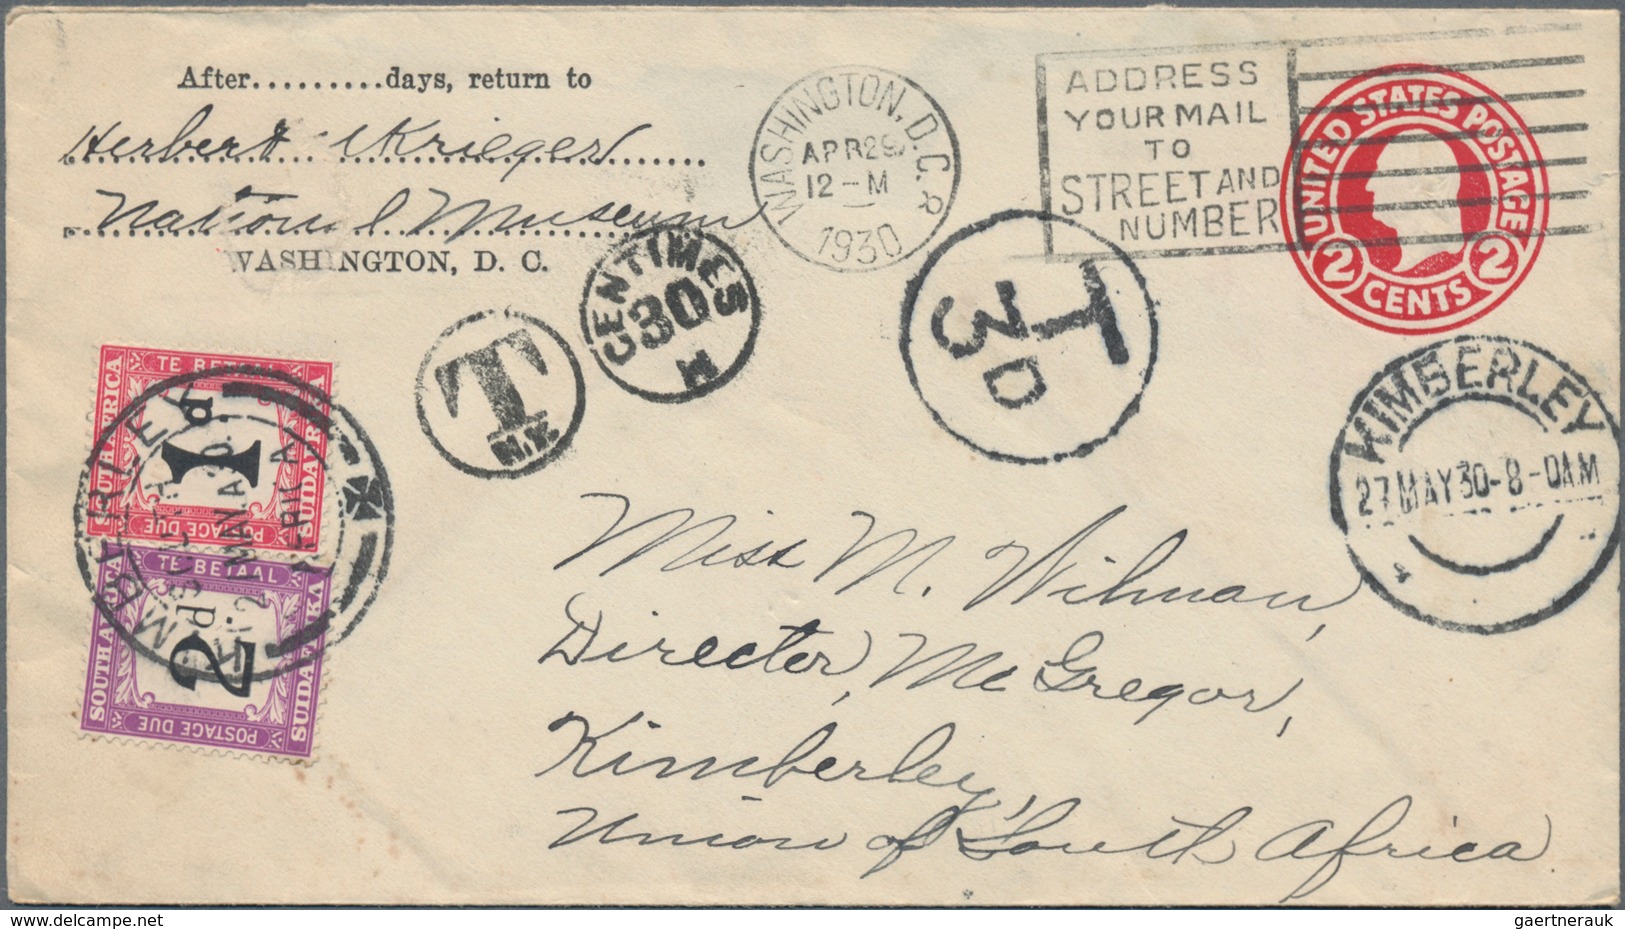 After.........days, return to
Herbert Krieger
National Museum
WASHINGTON, D. C.
WASHINGTON, D.C.
APR 29
12-M
1930
ADDRESS
YOUR MAIL
TO
STREET AND
NUMBER
UNITED STATES POSTAGE
2 CENTS 2
T
N.Y.
CENTIMES
30
N
T
3D
KIMBERLEY
27 MAY 30-8-0AM
TE BETAAL
SOUTH AFRICA
1d
SUIDAFRIKA
POSTAGE DUE
TE BETAAL
SOUTH AFRICA
2d
SUIDAFRIKA
POSTAGE DUE
Miss M. Wilman,
Director, Mc Gregor,
Kimberley,
Union of South Africa
www.delcampe.net
gaertnerauk